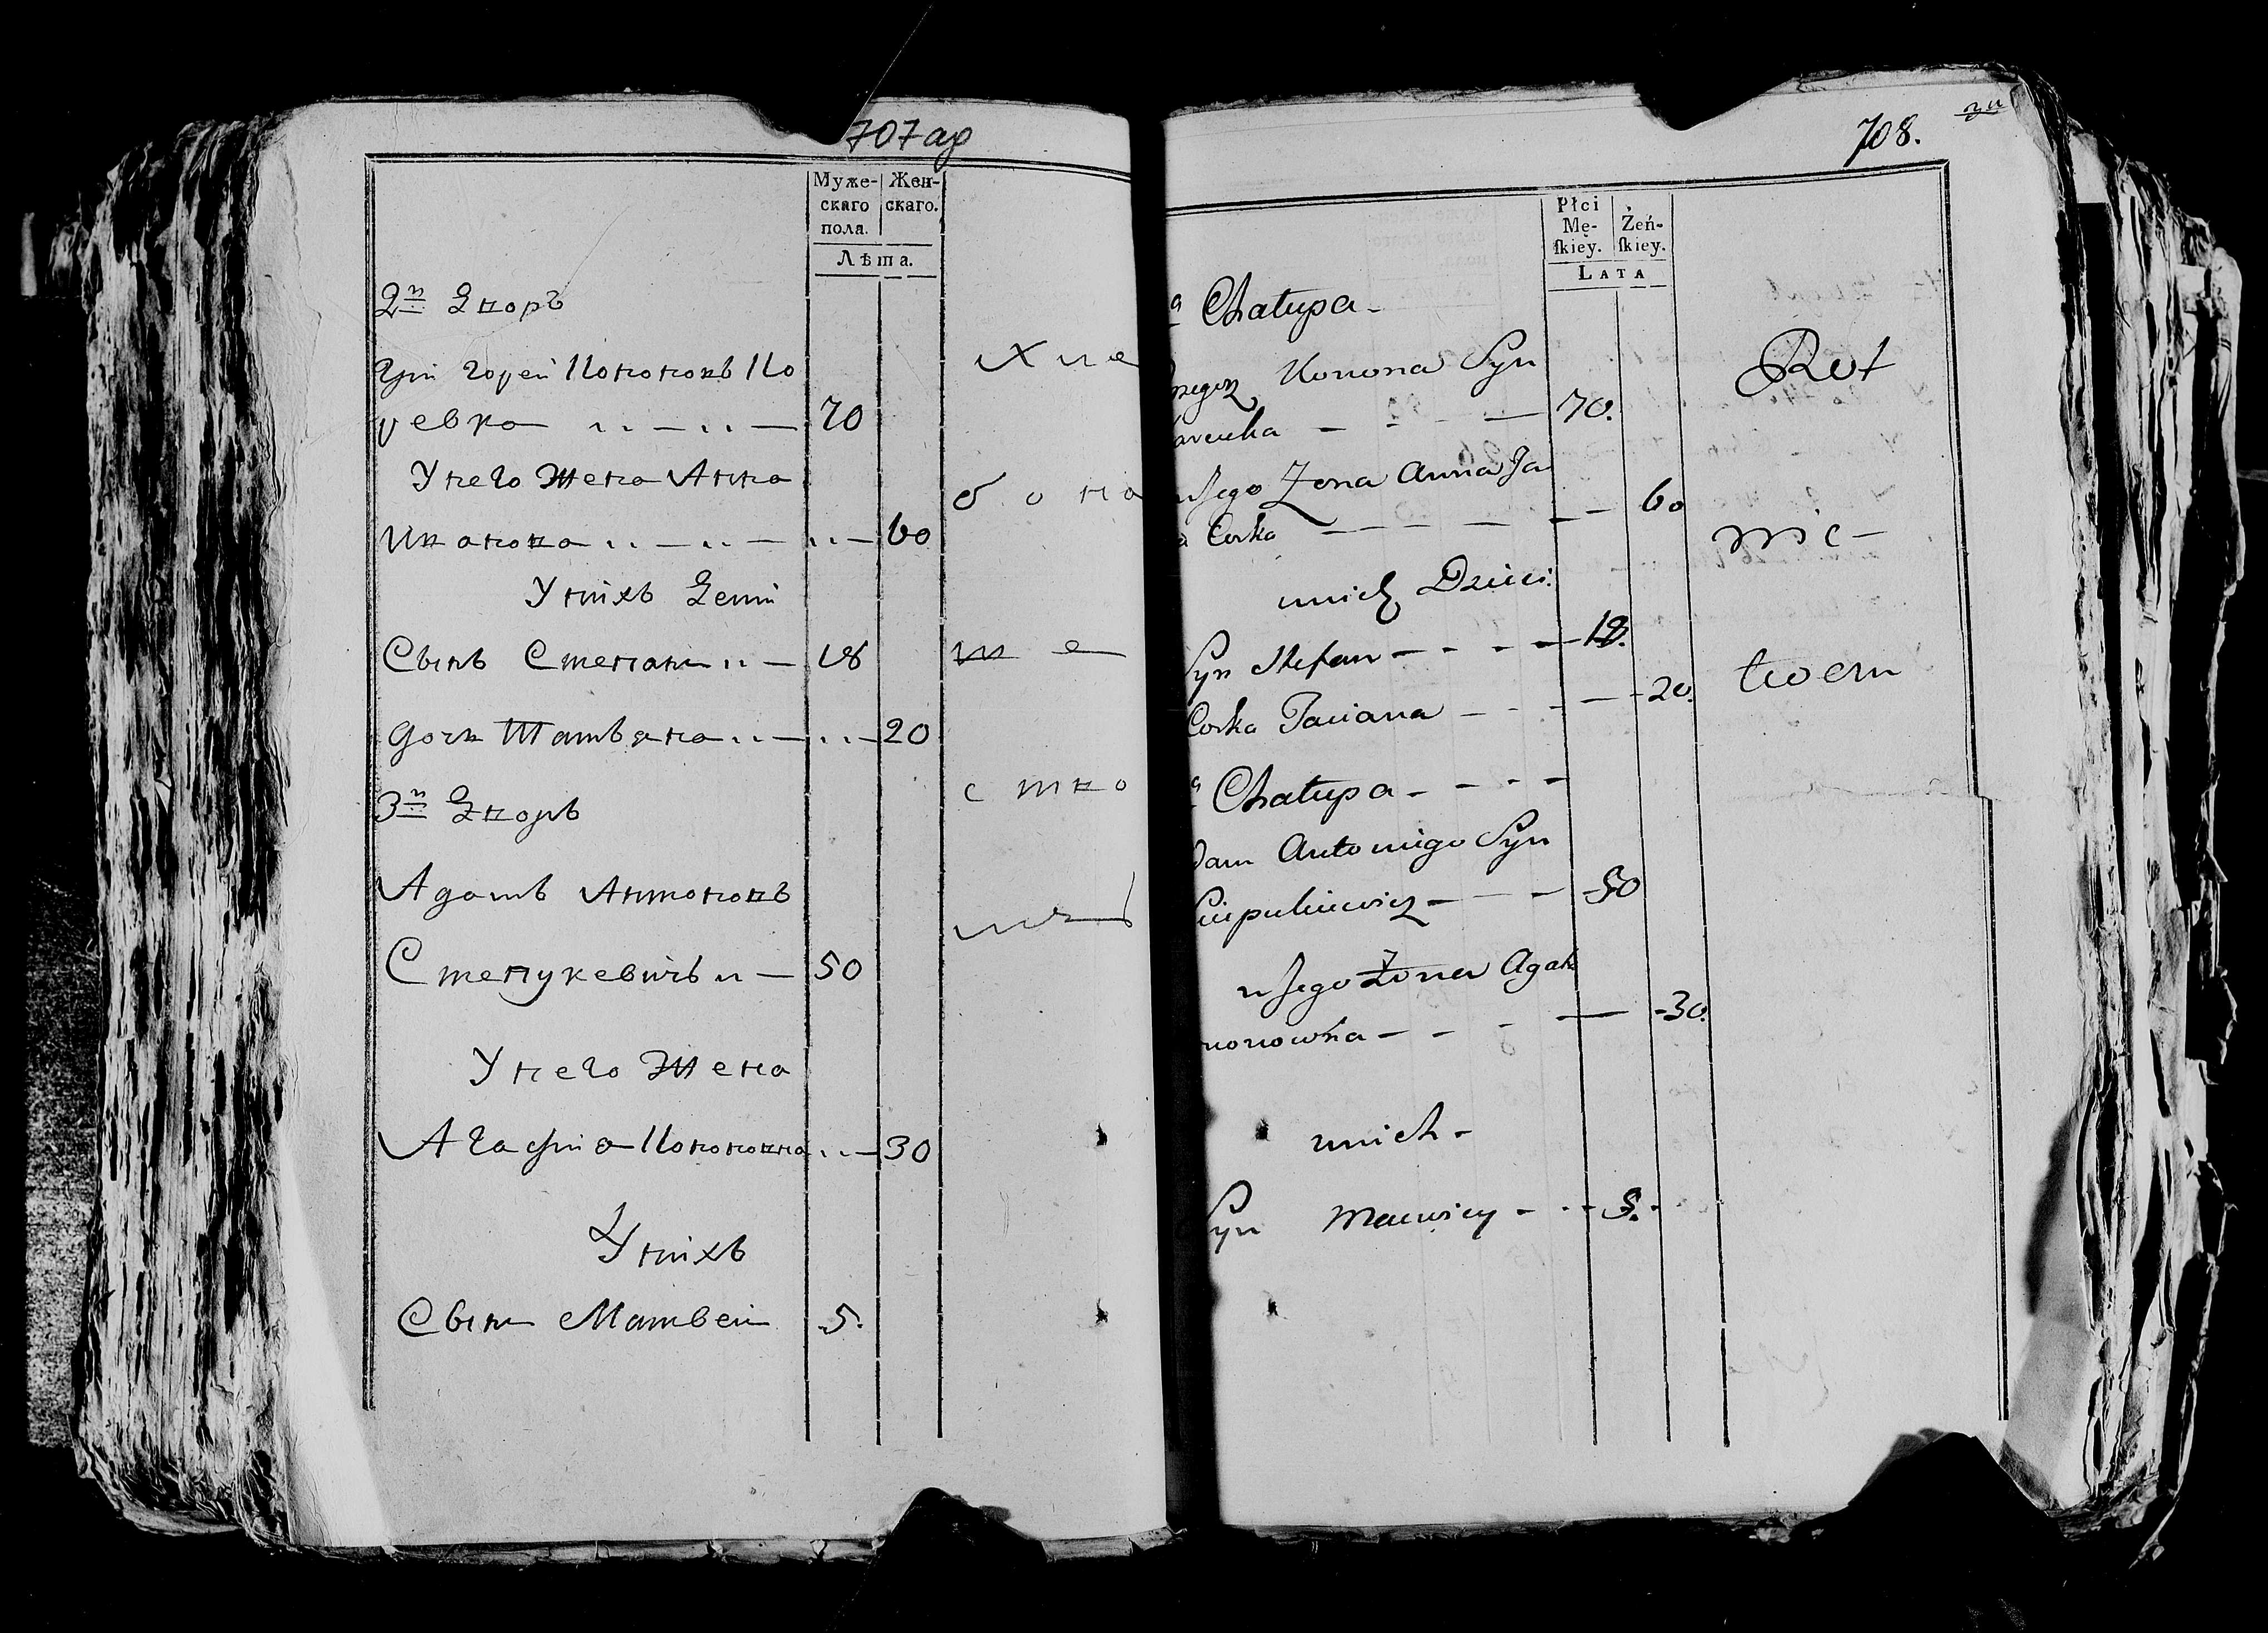 707 ар
Муже-
скаго
пола.
Жен-
скаго.
Лѣта.
2й Дворъ
Григорей Кононовъ Ко
ревко 70
У него Жена Анна
Иванова 60
У нихъ Дети
Сынъ Степанъ 18
дочь Татьяна 20
3й Дворъ
Адамъ Антоновъ
Степукевичъ 50
У него Жена
Агафия Кононовна 30
У нихъ
Сынъ Матвей 5.
хле
бопа
ше
ство
708.
Płci
Mę-
skiey.
Żeń-
skiey.
LATA
a Chałupa
Konona Syn
70.
u Jego Żona Anna Ja
a Corka 60
u nich Dzieci
Syn Stefan 18.
Corka Taciana 20.
a Chałupa
dam Antoniego Syn
50
u Jego Żona Agah
nonowna 30.
u nich
Syn Maciey 5.
Rol
nic
twem